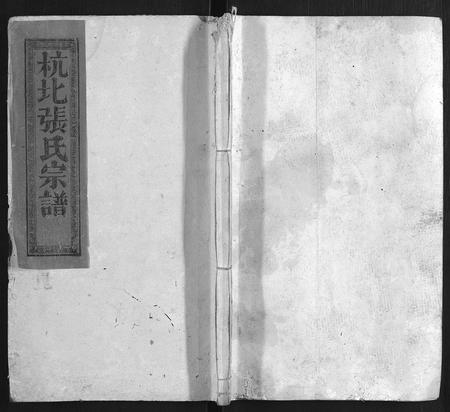 杭北張氏宗譜